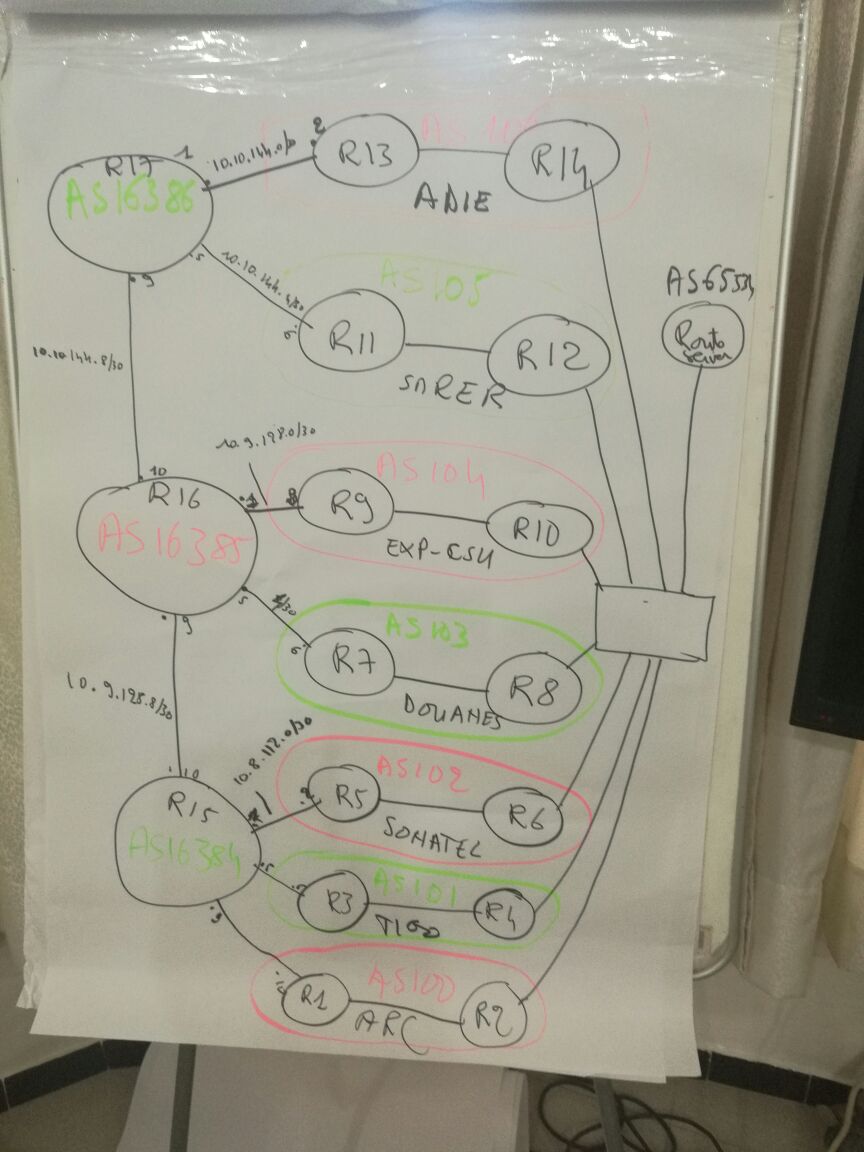 R17
1
10.10.144.0/
2
R13
R14
AS16386
ADIE
5
9
10.10.144.4/30
6
AS105
R11
R12
SNRER
AS6553
Route
server
10.10.144.8/30
10
R16
AS16385
10.9.128.0/30
AS104
R9
R10
EXP-ESU
5
/30
6
9
AS103
R7
R8
DOUANES
10.9.128.8/30
10
R15
AS16384
10.8.112.0/30
2
AS102
R5
R6
SONATEL
5
AS101
R3
R4
TIGO
9
AS100
10
R1
R2
ARC